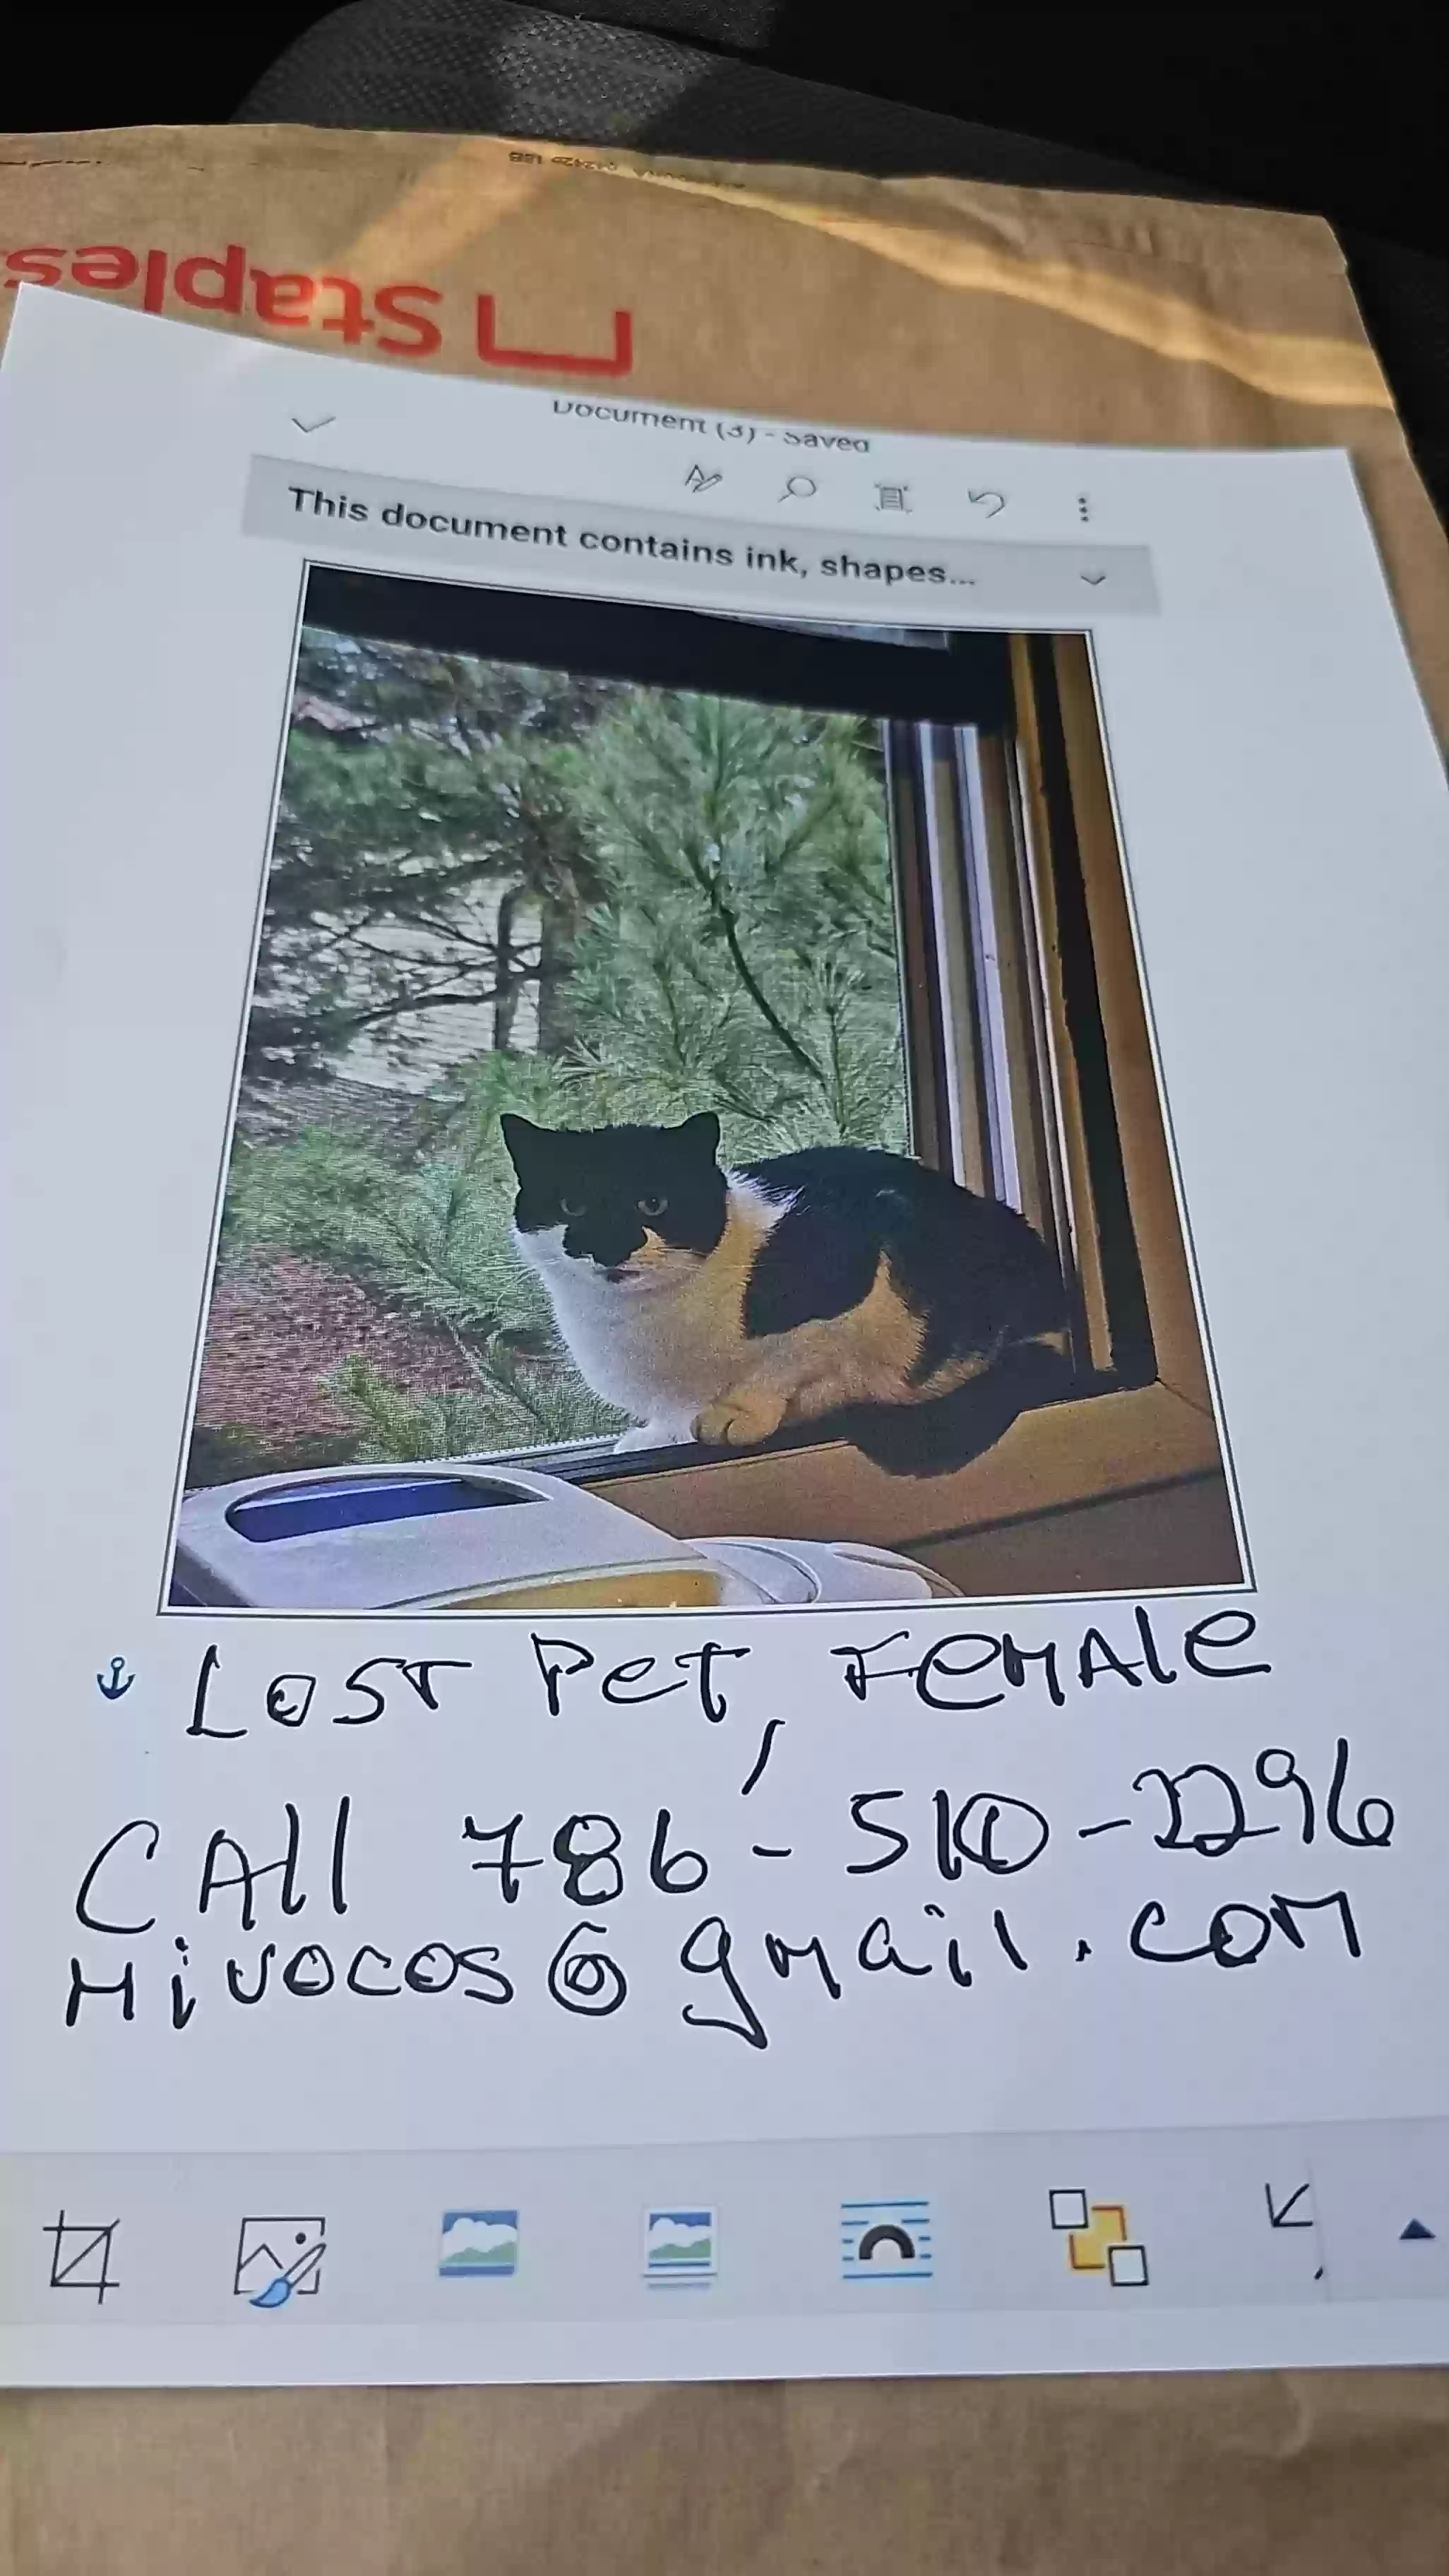 Staples
Document (3) - Saved
This document contains ink, shapes...
LOST PeT, FeMAle
CAll 786-510-2296
Mivocos@gmail.com